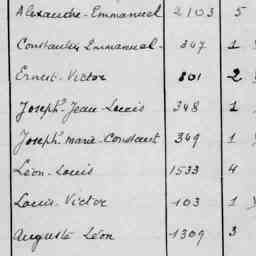 Alexandre-Emmanuel 2103 5
Constantin Emmanuel - 347 1
Ernest-Victor 801 2
Joseph-Jean-Louis 348 1
Joseph-Marie-Constant 349 1
Léon-Louis 1533 4
Louis-Victor 103 1
Auguste Léon 1309 3